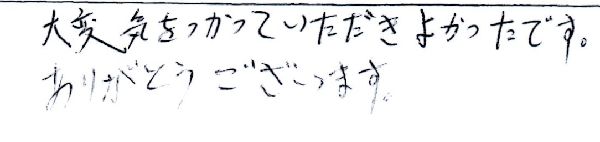 大変気をつかっていただきよかったです。
ありがとうございます。